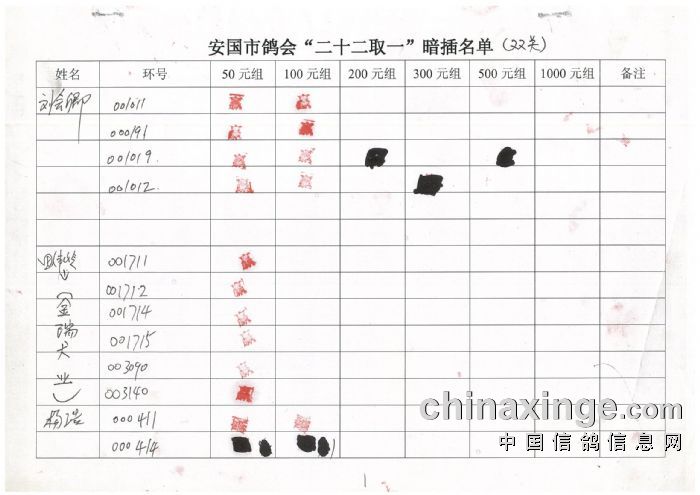 安国市鸽会“二十二取一”暗插名单（22关）
姓名 环号 50元组 100元组 200元组 300元组 500元组 1000元组 备注
001011
000191
001019.
001012.
001711
001712
（金瑞犬业） 001714
001715
003090
003140
杨浩 000411
000414
chinaxinge.com
中国信鸽信息网
1